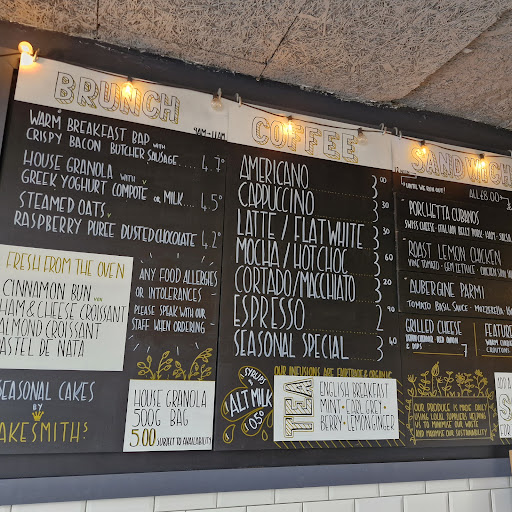 BRUNCH
9AM-11AM
WARM BREAKFAST BAP WITH
CRISPY BACON BUTCHER SAUSAGE..... 4.7°
HOUSE GRANOLA WITH
GREEK YOGHURT COMPOTE OR MILK.... 4.5°
STEAMED OATS
RASPBERRY PUREE DUSTED CHOCOLATE 4.2°
FRESH FROM THE OVEN
CINNAMON BUN
HAM & CHEESE CROISSANT
ALMOND CROISSANT
PASTEL DE NATA
ANY FOOD ALLERGIES
OR INTOLERANCES
PLEASE SPEAK WITH OUR
STAFF WHEN ORDERING
SEASONAL CAKES
BY
AKESMITHS
HOUSE GRANOLA
500G BAG
500 SUBJECT TO AVAILABILITY
COFFEE
AMERICANO 3
CAPPUCCINO 3
LATTE / FLAT WHITE 3
MOCHA / HOT CHOC 3
CORTADO/MACCHIATO 3
ESPRESSO 2
SEASONAL SPECIAL 3
SYRUPS
OR
ALT MILK
0.50
OUR INFUSIONS ARE FAIRTRADE & ORGANIC
TEA
ENGLISH BREAKFAST
MINT • EARL GREY •
BERRY • LEMONGINGER
SANDWICH
UNTIL WE RUN OUT!
ALL £8.00
PORCHETTA CUBANOS
SWISS CHEESE - ITALIAN BELLY PORK - HAM - SALSA
ROAST LEMON CHICKEN
VINE TOMATO - GEM LETTUCE - CHICKEN SKIN
AUBERGINE PARMI
TOMATO BASIL SAUCE - MOZZARELLA
GRILLED CHEESE
RED ONION
& DIPS 7
FEATURE
CROUTONS
OUR PRODUCE IS MADE DAILY
USING LOCAL SUPPLIERS HELPING
US TO MINIMISE OUR WASTE
AND MAXIMISE OUR SUSTAINABILITY